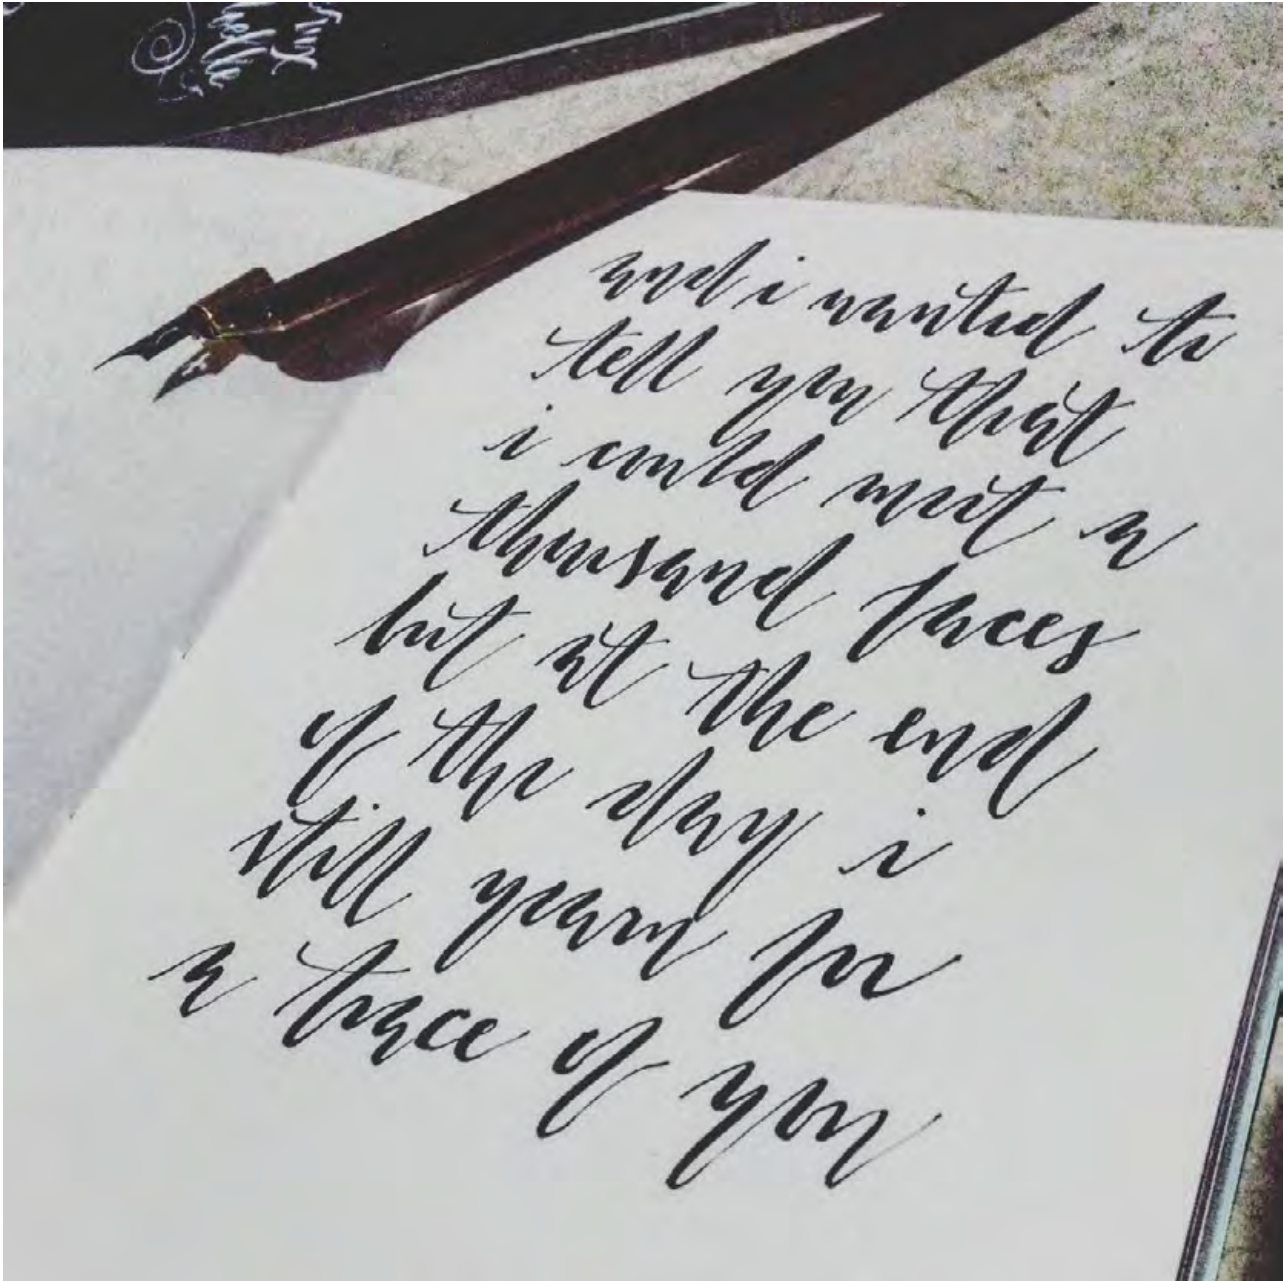 and i wanted to
tell you that
i could meet a
thousand faces
but at the end
of the day i
still yearn for
a trace of you